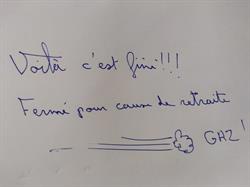 Voilà c'est fini!!!
Fermé pour cause de retraite
GAZ!